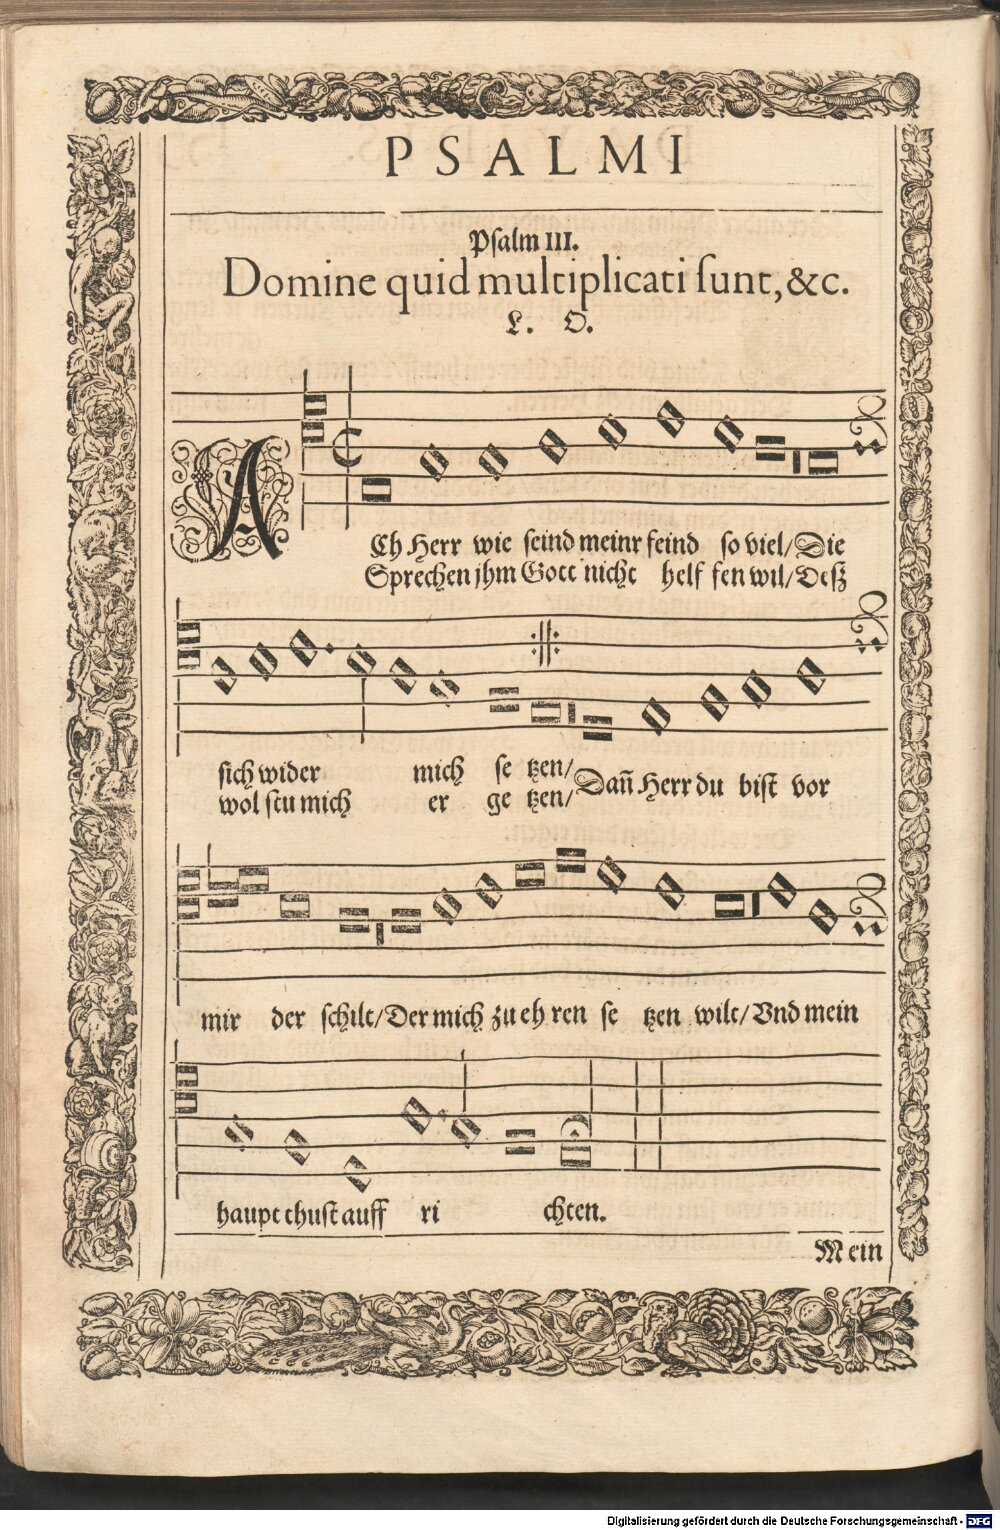 PSALMI
Psalm III.
Domine quid multiplicati ſunt, &c.
L. O.
ACh Herr wie ſeind meinr feind ſo viel/ Die
Sprechen jhm Gott nicht helf fen wil/ Deſz
ſich wider mich ſe tzen/
wol ſtu mich er ge tzen/ Dañ Herr du biſt vor
mir der ſchilt/ Der mich zu eh ren ſe tzen wilt/ Vnd mein
haupt thuſt auff ri chten.
Mein
Digitalisierung gefördert durch die Deutsche Forschungsgemeinschaft - DFG